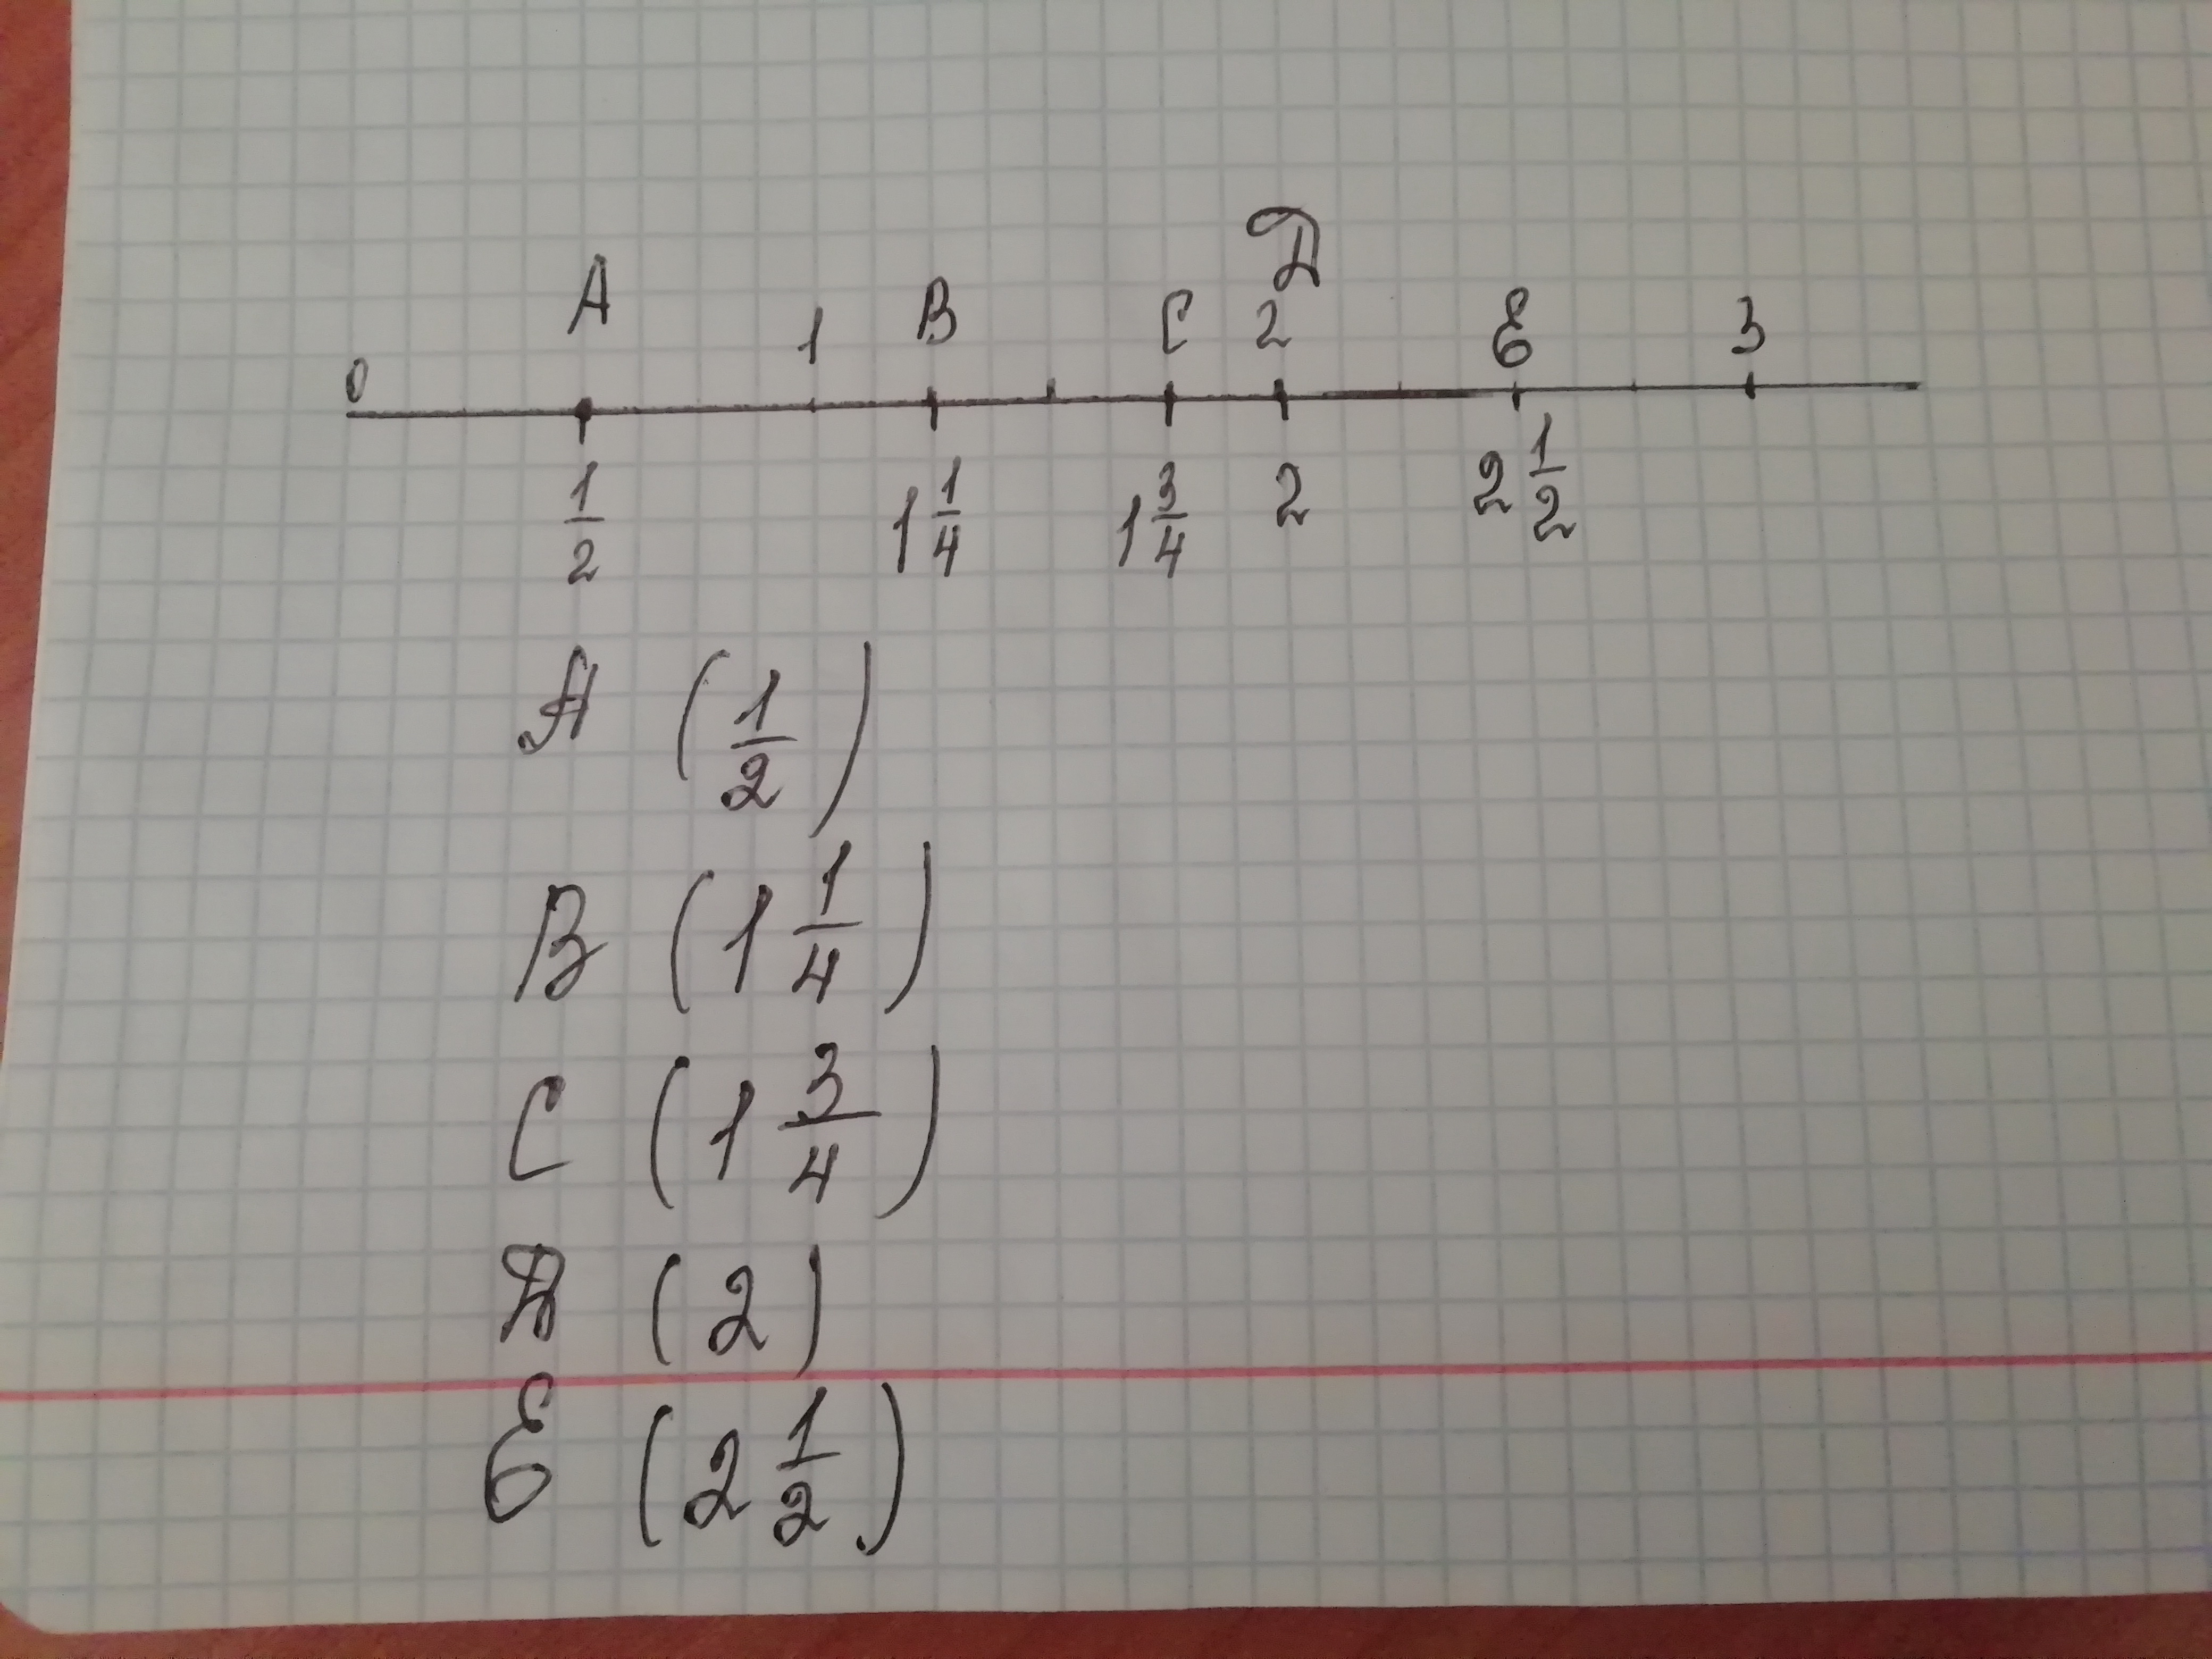 Д
A 1 B C 2 E 3
0
1/2 1 1/4 1 3/4 2 2 1/2
A (1/2)
B (1 1/4)
C (1 3/4)
Д (2)
E (2 1/2)